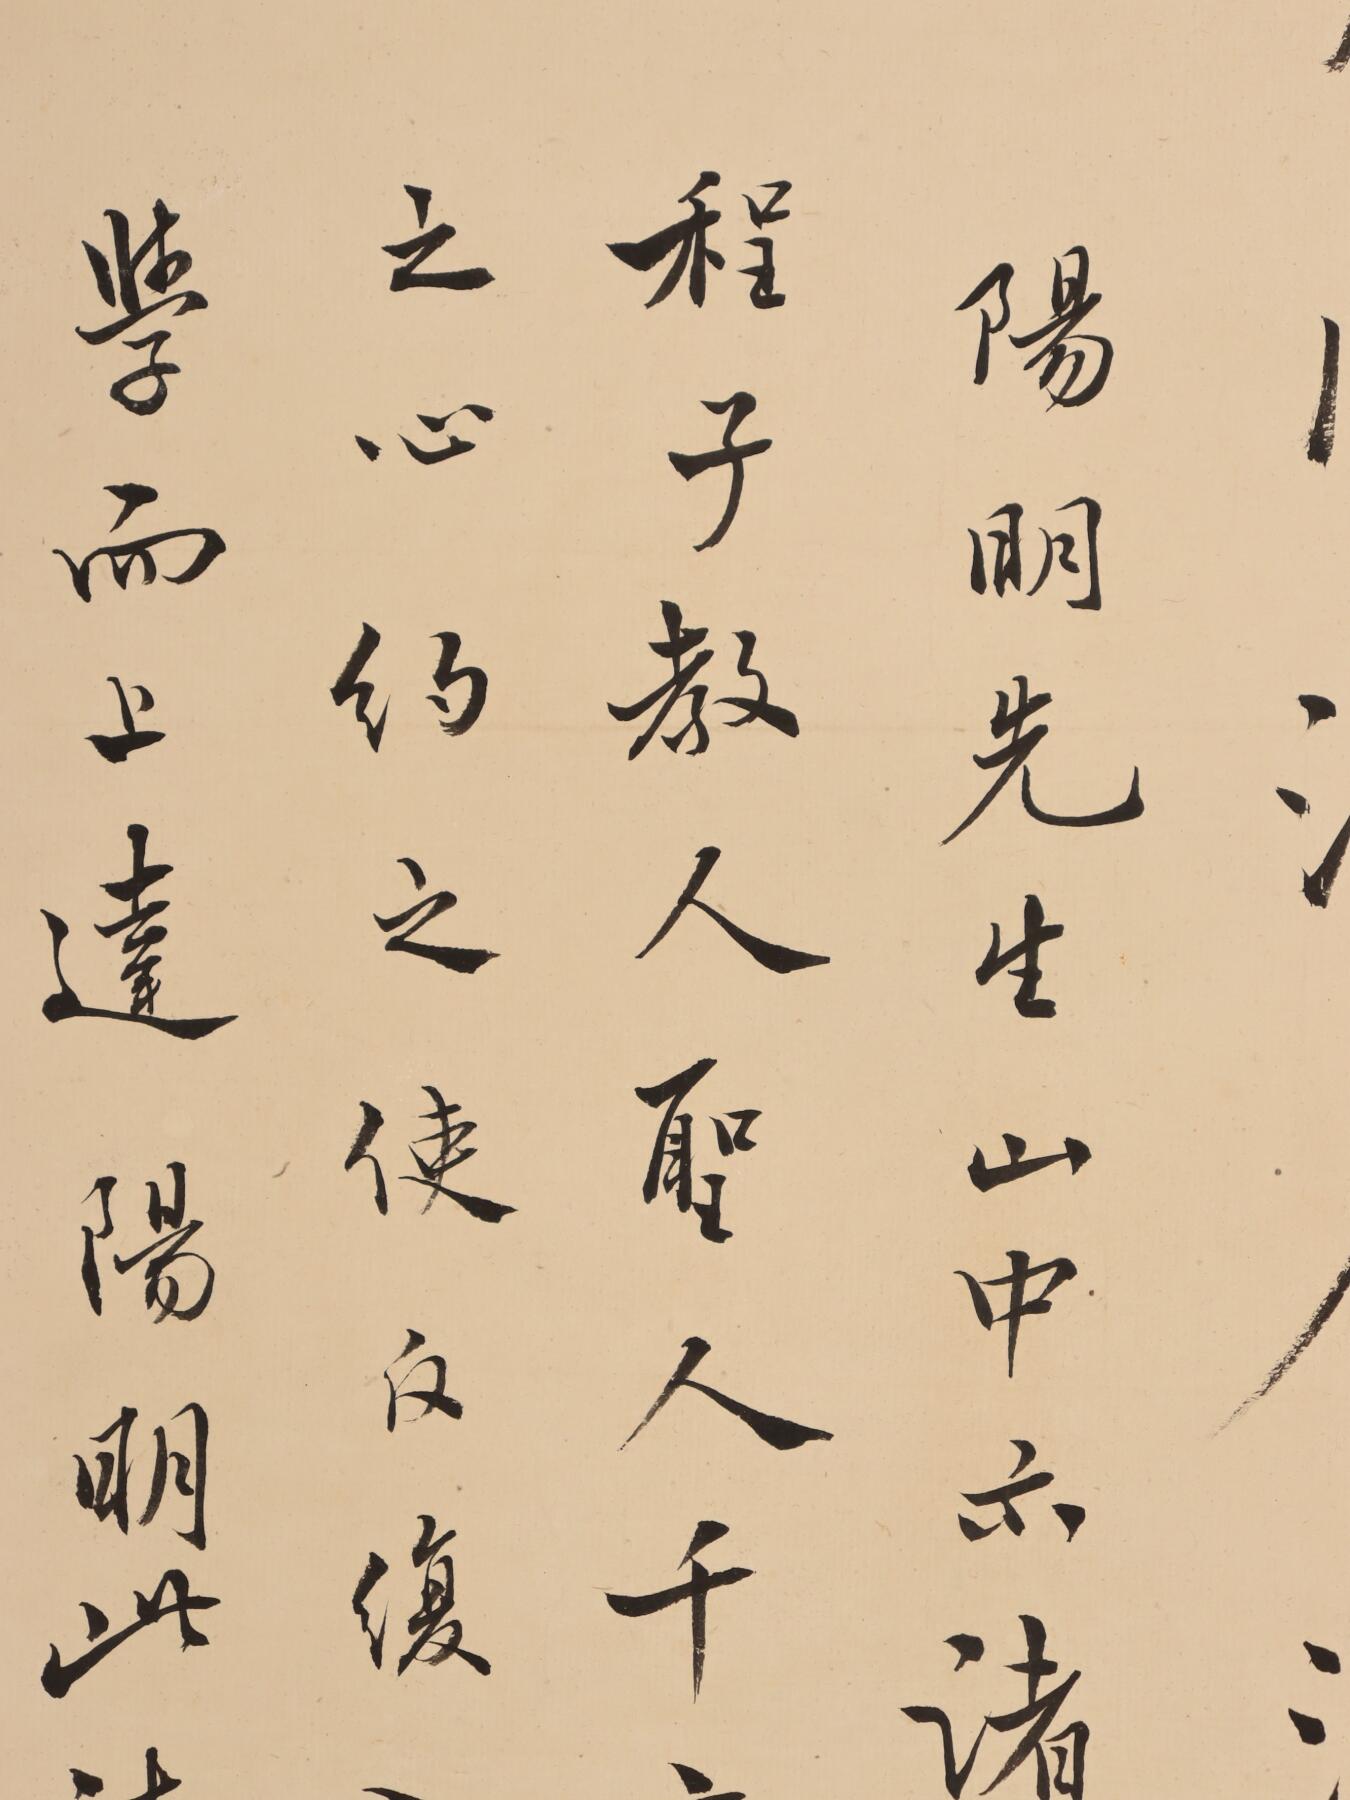 陽明先生山中示諸
程子教人聖人千
之心約之使反復
學而上達陽明此